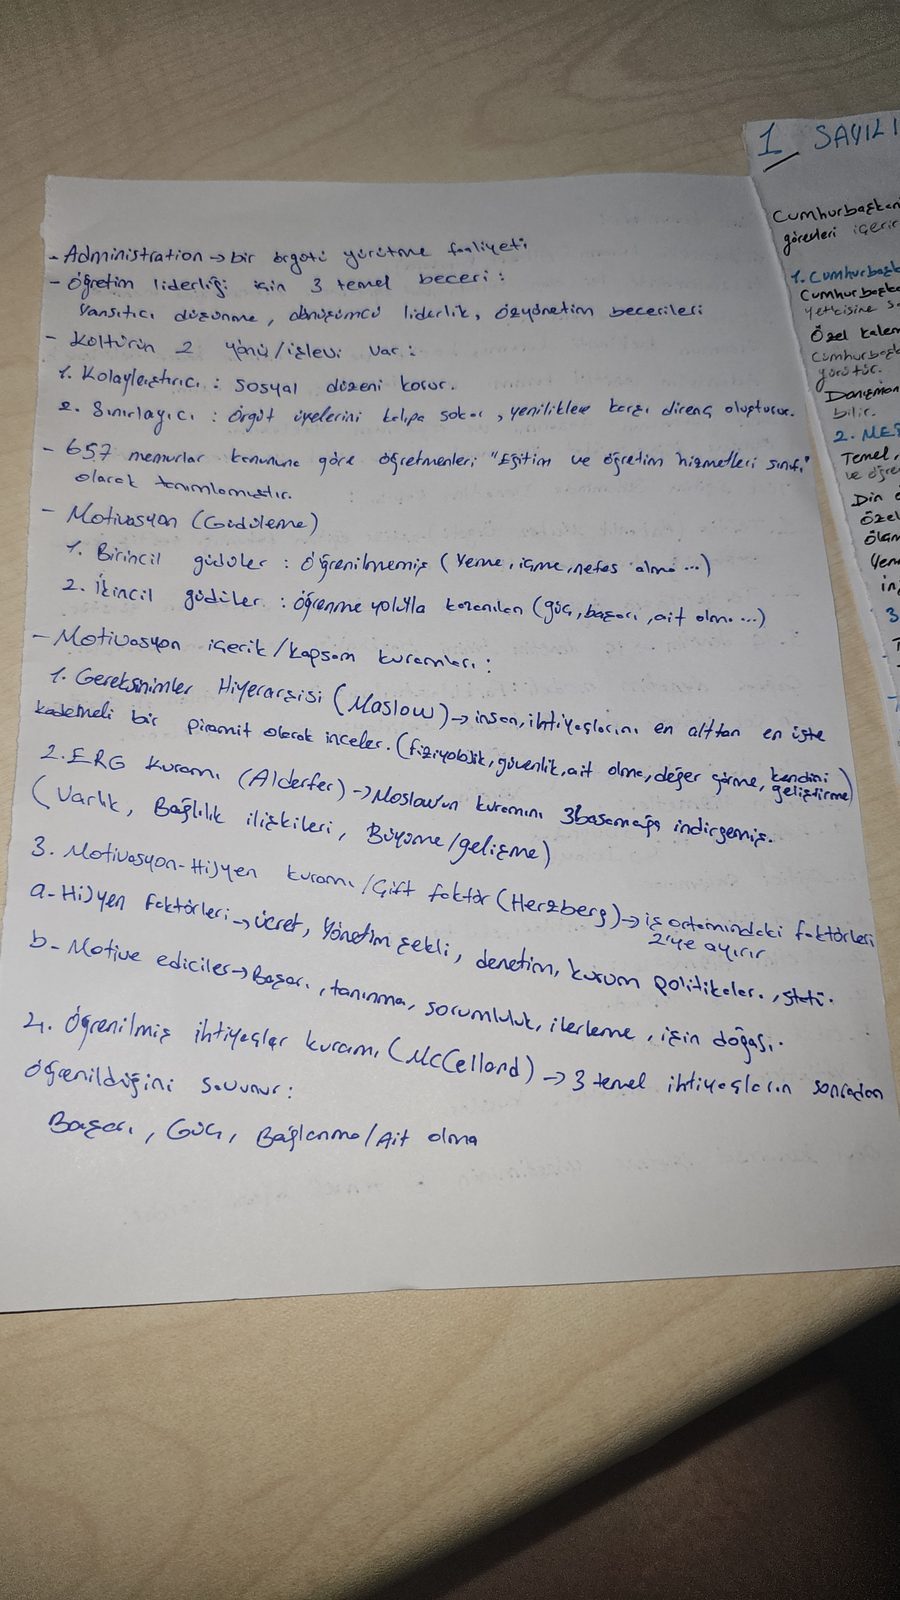 - Administration → bir örgütü yürütme faaliyeti
- Öğretim liderliği için 3 temel beceri :
Yansıtıcı düşünme, dönüşümcü liderlik, özyönetim becerileri
- Kültürün 2 yönü/işlevi var :
1. Kolaylaştırıcı : Sosyal düzeni korur.
2. Sınırlayıcı : Örgüt üyelerini kalıpa sokar, yeniliklere karşı direnç oluşturur.
- 657 memurlar kanununa göre öğretmenleri "Eğitim ve öğretim hizmetleri sınıfı"
olarak tanımlamıştır.
- Motivasyon (Güdüleme)
1. Birincil güdüler : Öğrenilmemiş (Yeme, içme, nefes alma ...)
2. İkincil güdüler : öğrenme yoluyla kazanılan (güç, başarı, ait olma ...)
- Motivasyon içerik/kapsam kuramları :
1. Gereksinimler Hiyerarşisi (Maslow) → insan, ihtiyaçlarını en alttan en üste
kademeli bir piramit olarak inceler. (fizyolojik, güvenlik, ait olma, değer görme, kendini
geliştirme)
2. ERG kuramı (Alderfer) → Maslow'un kuramını 3 basamağa indirgemiş.
(Varlık, Bağlılık ilişkileri, Büyüme/gelişme)
3. Motivasyon-Hijyen kuramı /Çift faktör (Herzberg) → iş ortamındaki faktörleri
2'ye ayırır
a- Hijyen faktörleri → ücret, Yönetim şekli, denetim, kurum politikaları, statü.
b- Motive ediciler → Başarı, tanınma, sorumluluk, ilerleme, işin doğası.
4. Öğrenilmiş ihtiyaçlar kuramı (McCelland) → 3 temel ihtiyaçların sonradan
öğrenildiğini savunur :
Başarı, Güç, Bağlanma/Ait olma
1 SAYILI
Cumhurbaşkanı
görevleri içerir
1. Cumhurbaşk
Cumhurbaşka
yetkisine s
Özel kalem
Cumhurbaşk
yürütür.
Danışman
bilir.
2. MEB
Temel,
ve öğre
Din
özel
Yen
3